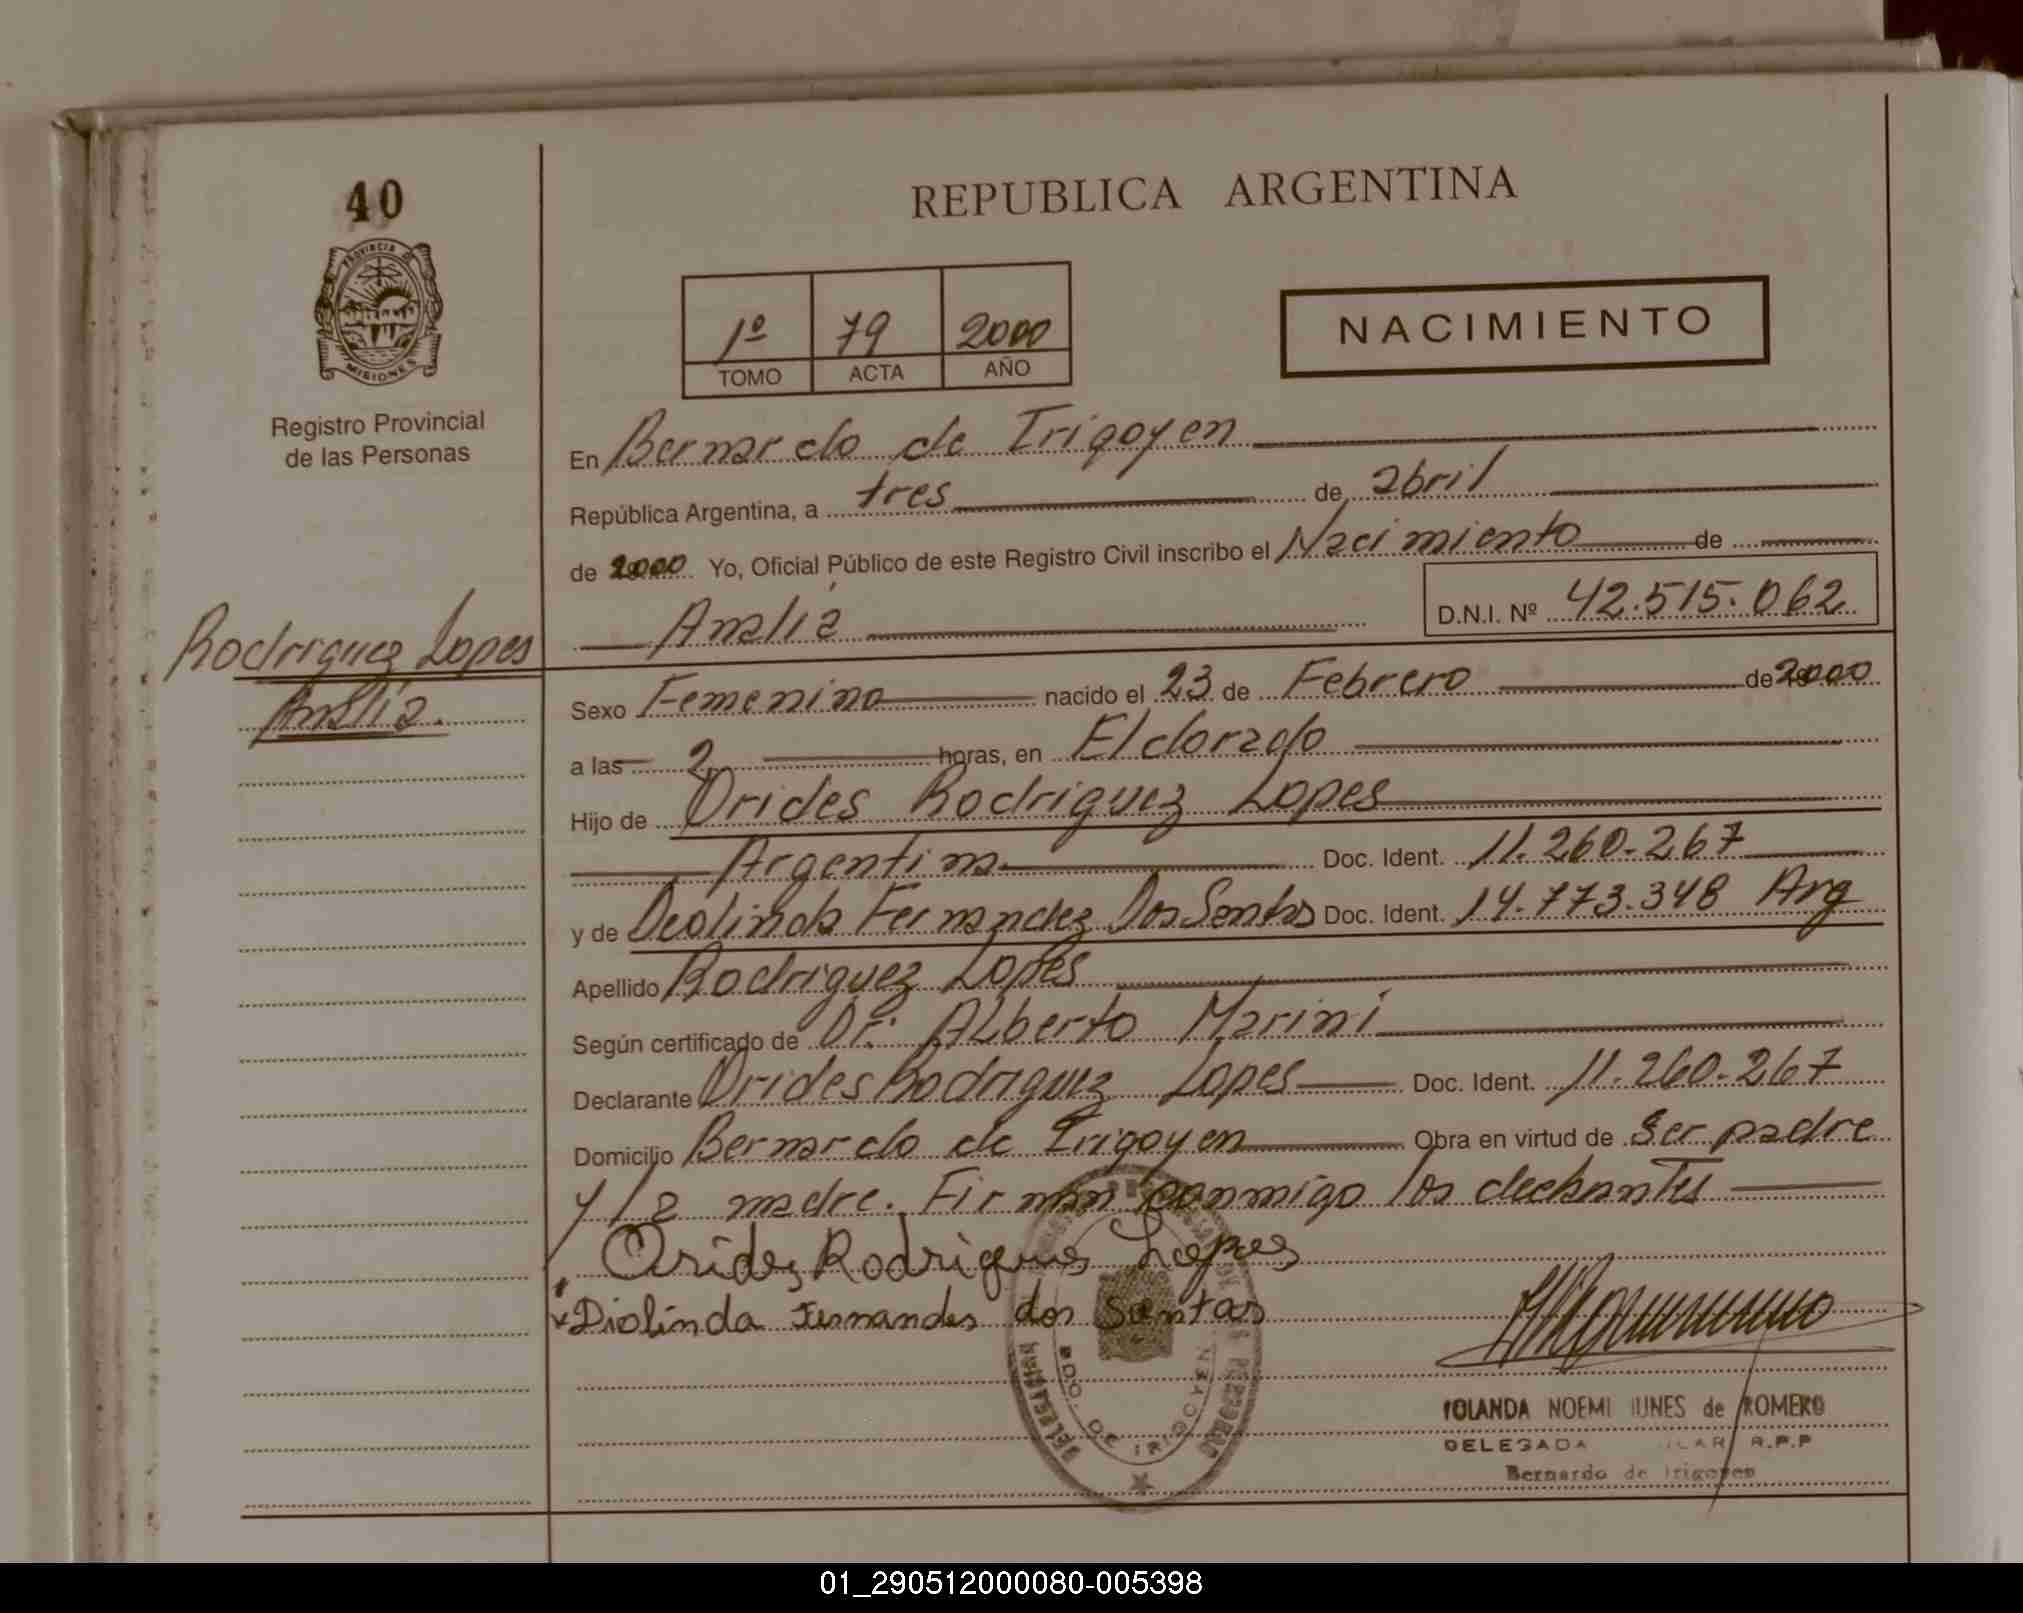 40
PROVINCIA DE
MISIONES
Registro Provincial
de las Personas
Rodriguez Lopes
Analia.
REPUBLICA ARGENTINA
1º 79 2000
TOMO ACTA AÑO
NACIMIENTO
En Bernardo de Irigoyen
República Argentina, a tres de abril
de 2000 Yo, Oficial Público de este Registro Civil inscribo el Nacimiento de
Analía D.N.I. Nº 42.515.062
Sexo Femenino nacido el 23 de Febrero de 2000
a las 2 horas, en Eldorado
Hijo de Orides Rodriguez Lopes
Argentina Doc. Ident. 11.260.267
y de Deolinda Fernandez Dos Santos Doc. Ident. 14.773.348 Arg
Apellido Rodriguez Lopes
Según certificado de Dr. Alberto Marini
Declarante Orides Rodriguez Lopes Doc. Ident. 11.260.267
Domicilio Bernardo de Irigoyen Obra en virtud de Ser padre
y la madre. Firman conmigo los declarantes
Orides Rodrigues Lopes
x Diolinda Fernandes dos Santos
BDO. DE IRIGOYEN
YOLANDA NOEMI NUNES de ROMERO
DELEGADA R.P.P
Bernardo de Irigoyen
01_290512000080-005398